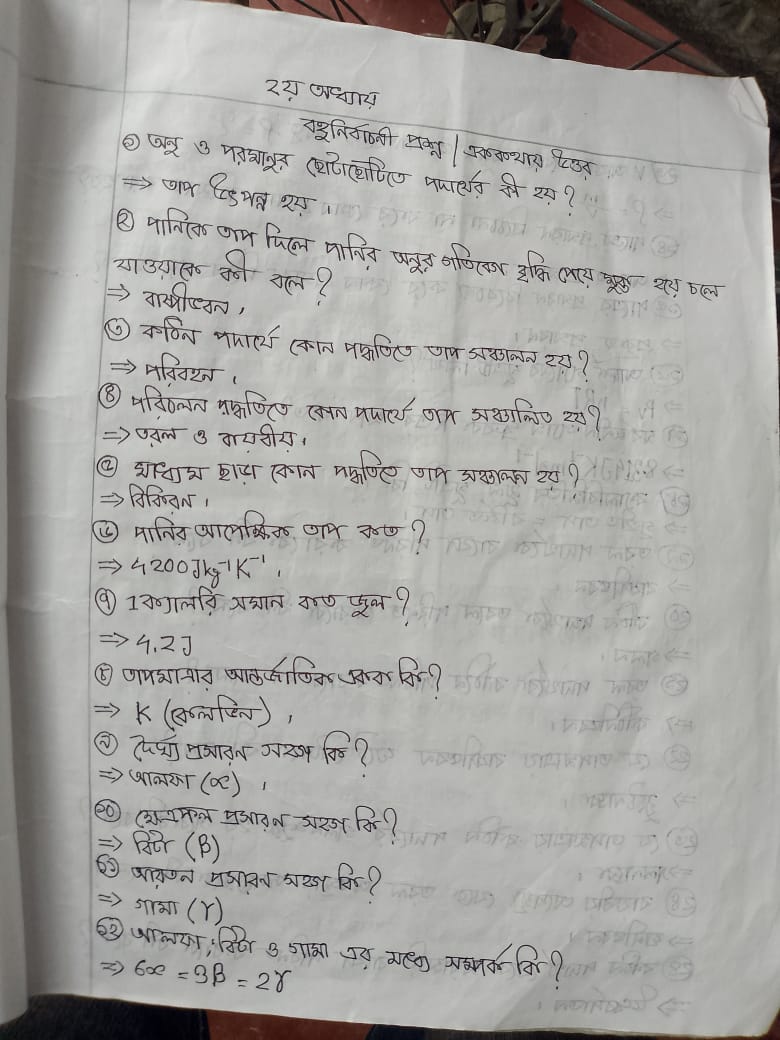 ২য় অধ্যায়
বহুনির্বাচনী প্রশ্ন / এককথায় উত্তর
১) অনু ও পরমানুর ছোটাছোটিতে পদার্থের কী হয়?
⇒ তাপ উৎপন্ন হয়।
২) পানিকে তাপ দিলে পানির অনুর গতিবেগ বৃদ্ধি পেয়ে মুক্ত হয়ে চলে
যাওয়াকে কী বলে?
⇒ বাষ্পীভবন।
৩) কঠিন পদার্থে কোন পদ্ধতিতে তাপ সঞ্চালন হয়?
⇒ পরিবহন।
৪) পরিচলন পদ্ধতিতে কোন পদার্থে তাপ সঞ্চালিত হয়?
⇒ তরল ও বায়বীয়।
৫) মাধ্যম ছাড়া কোন পদ্ধতিতে তাপ সঞ্চালন হয়?
⇒ বিকিরন।
৬) পানির আপেক্ষিক তাপ কত?
⇒ 4200Jkg⁻¹K⁻¹।
৭) 1ক্যালরি সমান কত জুল?
⇒ 4.2J
৮) তাপমাত্রার আন্তর্জাতিক একক কি?
⇒ K (কেলভিন)।
৯) দৈর্ঘ্য প্রসারন সহগ কি?
⇒ আলফা (∝)।
১০) ক্ষেত্রফল প্রসারন সহগ কি?
⇒ বিটা (β)
১১) আয়তন প্রসারন সহগ কি?
⇒ গামা (γ)
১২) আলফা, বিটা ও গামা এর মধ্যে সম্পর্ক কি?
⇒ 6∝ = 3β = 2γ